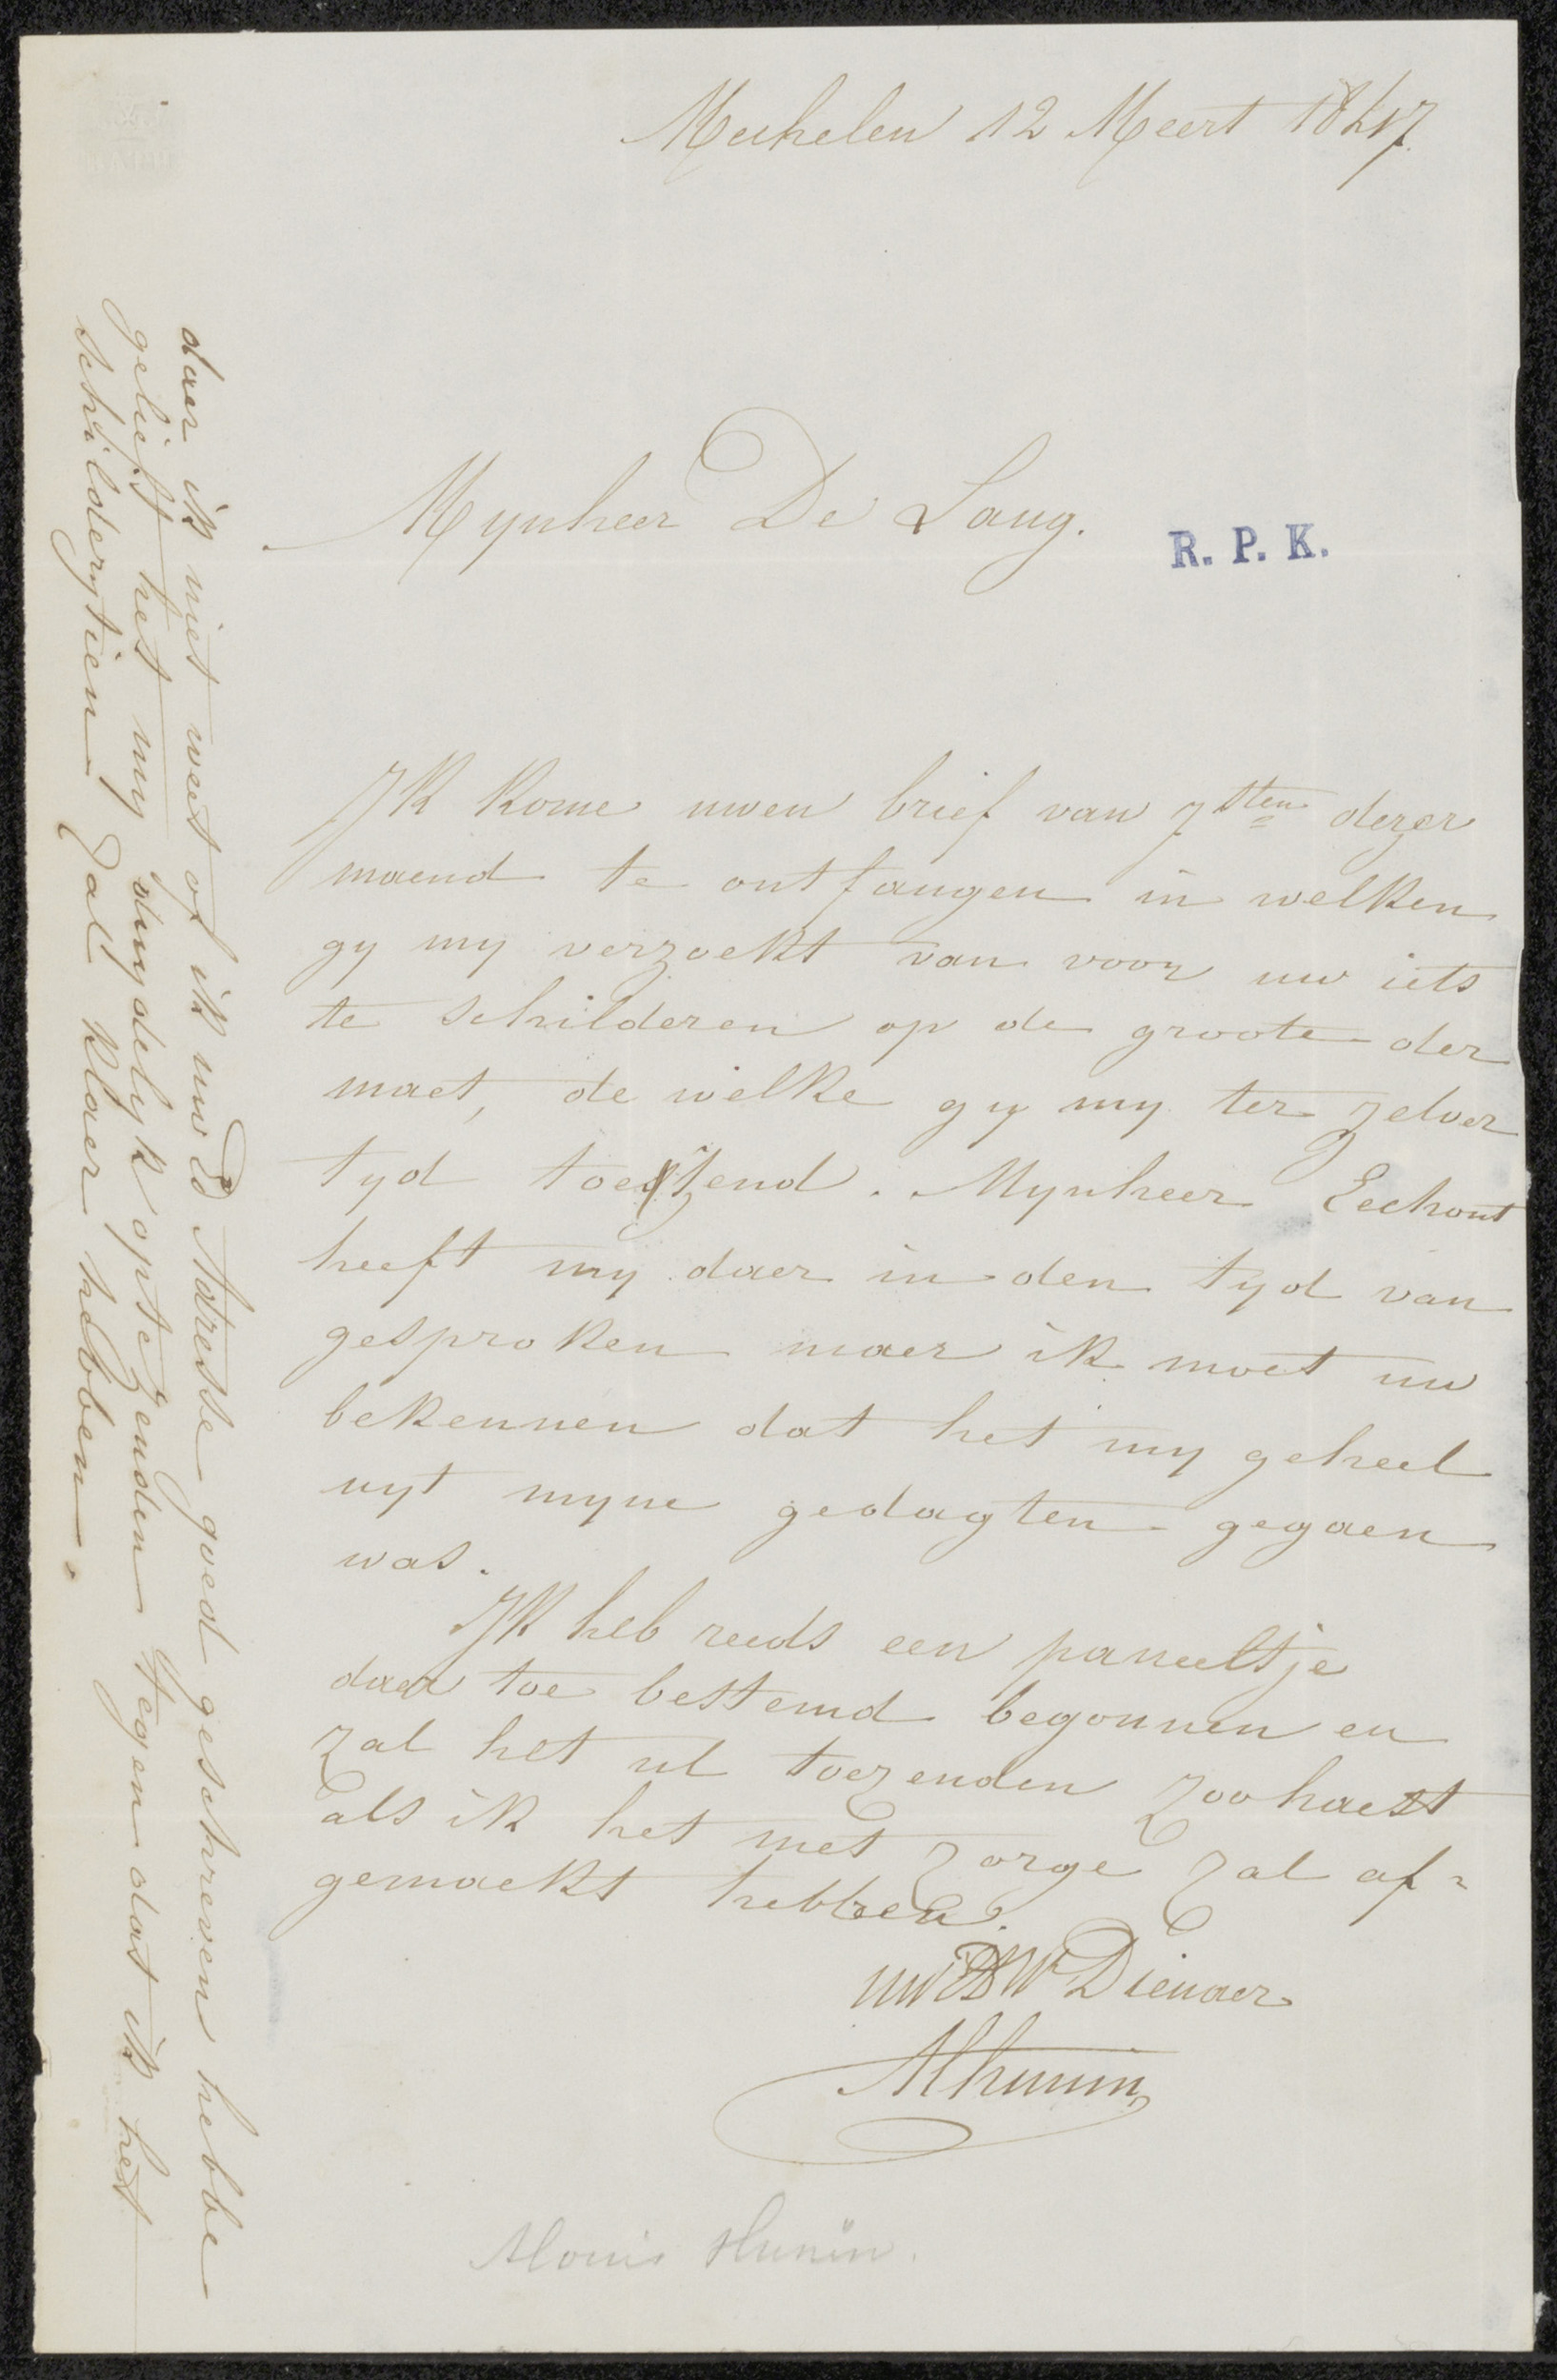 Mechelen 12 Meert 1847.
Mynheer De Lang.
R. P. K.
Ik kome uwen brief van 7sten dezer
maend te ontfangen in welken
gy my verzoekt van voor uw iets
te schilderen op de groote der
maet, de welke gy my ter zelver
tyd toezend. Mynheer Eeckout
heeft my daer in den tyd van
gesproken maer ik moet uw
bekennen dat het my geheel
uyt myne gedagten gegaen
was.
Ik heb reeds een paneeltje
daer toe bestemd begonnen en
zal het ul toezenden zoohaest
als ik het met zorge zal af-
gemaekt hebben.
uwEdW Dienaer
AHunin
Alouis Hunin.
daer ik niet weet of ik uwEd Adresse goed geschreven hebbe
gelieft het my duydelyk opte zenden tegen dat ik het
schilderytien zall klaer hebben.